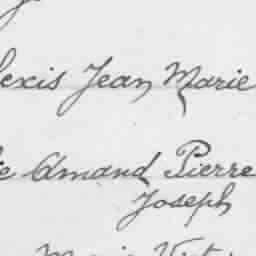 lexis Jean Marie
e Amand Pierre
Joseph